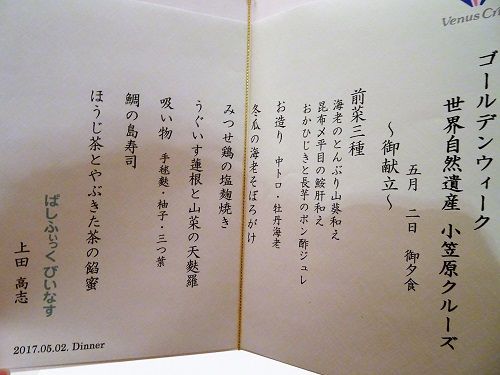 Venus Cr
ゴールデンウィーク
世界自然遺産 小笠原クルーズ
五月 二日 御夕食
～御献立～
前菜三種
海老のとんぶり山葵和え
昆布〆平目の鮟肝和え
おかひじきと長芋のポン酢ジュレ
お造り 中トロ・牡丹海老
冬瓜の海老そぼろがけ
みつせ鶏の塩麹焼き
うぐいす蓮根と山菜の天麩羅
吸い物 手毬麩・柚子・三つ葉
鯛の島寿司
ほうじ茶とやぶきた茶の餡蜜
ぱしふぃっく びいなす
上田 高志
2017.05.02. Dinner